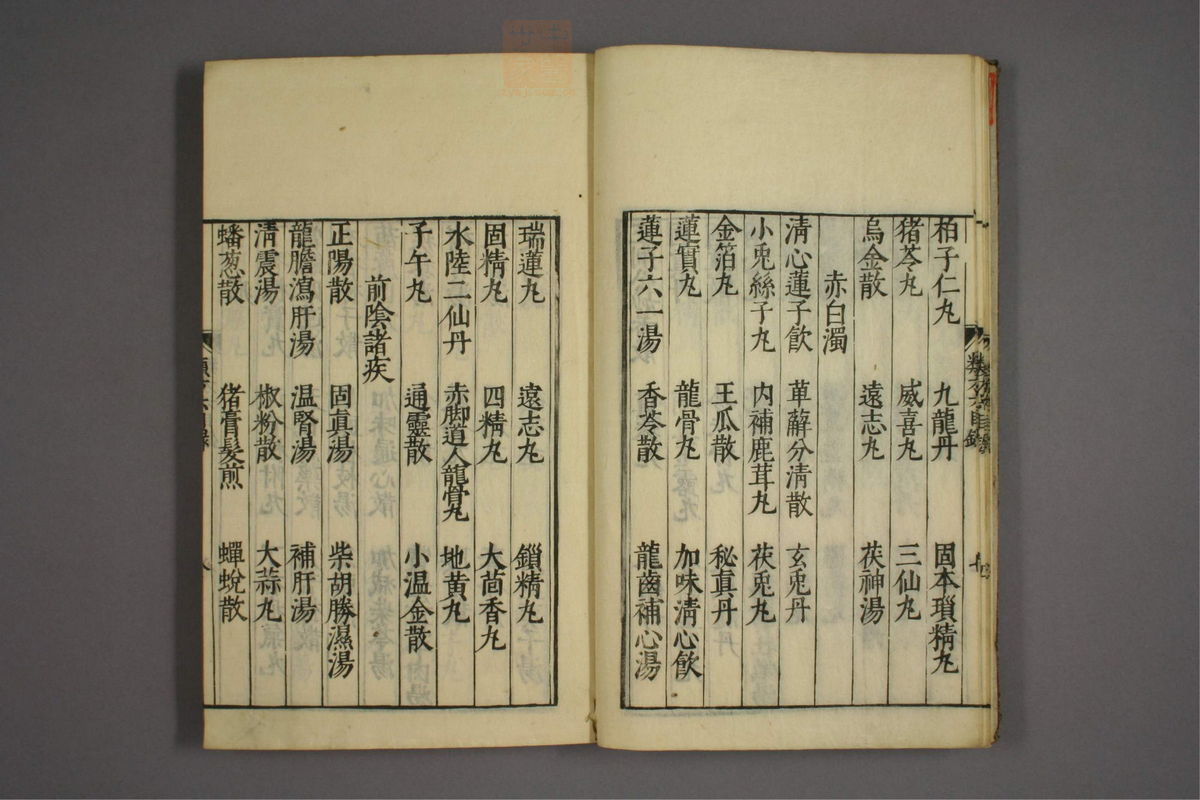 柏子仁丸 九龍丹 固本瑣精丸
猪苓丸 威喜丸 三仙丸
烏金散 遠志丸 茯神湯
赤白濁
清心蓮子飲 萆薢分清散 玄兎丹
小兎絲子丸 内補鹿茸丸 茯兎丸
金箔丸 王瓜散 秘真丹
蓮實丸 龍骨丸 加味清心飲
蓮子六一湯 香苓散 龍齒補心湯
瑞蓮丸 遠志丸 鎖精丸
固精丸 四精丸 大茴香丸
水陸二仙丹 赤脚道人龍骨丸 地黄丸
子午丸 通靈散 小温金散
前陰諸疾
正陽散 固真湯 柴胡勝濕湯
龍膽瀉肝湯 温腎湯 補肝湯
清震湯 椒粉散 大蒜丸
蟠葱散 猪膏髮煎 蟬蛻散